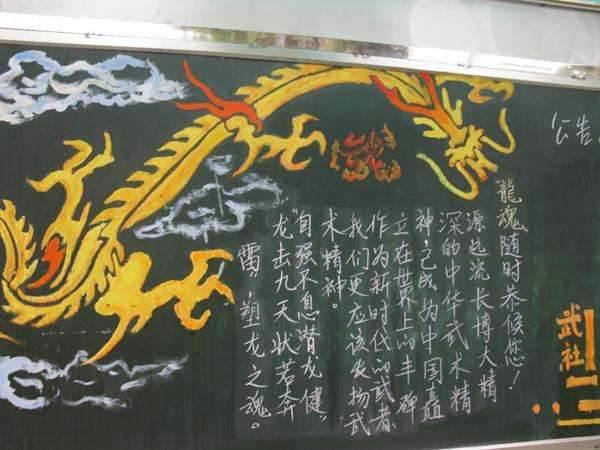 公告
武社
龍魂"随时恭候您!
源起流长博大精
深的中华武术精
神,已成为中国矗
立在世界上的丰碑
作为新时代的武者,
我们更应该发扬武
术精神。
自强不息潜龙健,
龙击九天状若奔
雷,塑龙之魂。